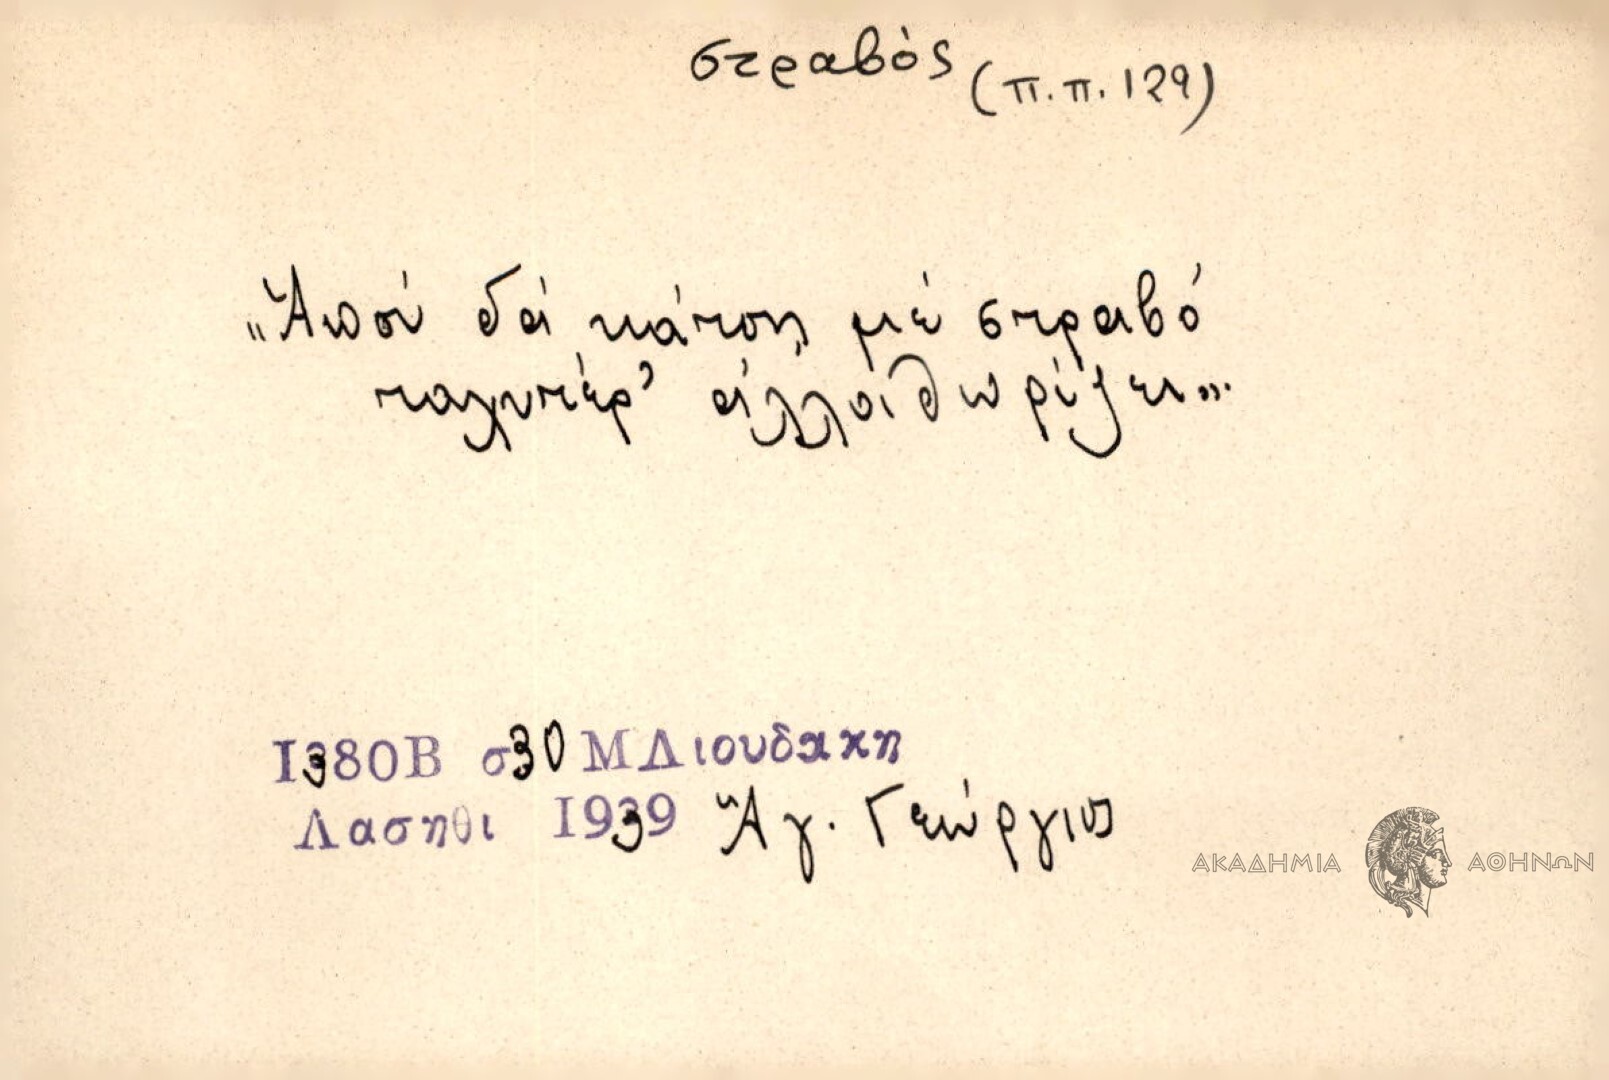 στραβὸς (π.π. 129)
„Ἀποὺ δὰ κάτση μὲ στραβὸ
ταχυτέρ' ἀλλοιθωρίζει".
1380Β σ30 ΜΔιουδακη
Λασηθι 1939 Ἅγ. Γεώργιος
ΑΚΑΔΗΜΙΑ ΑΘΗΝΩΝ